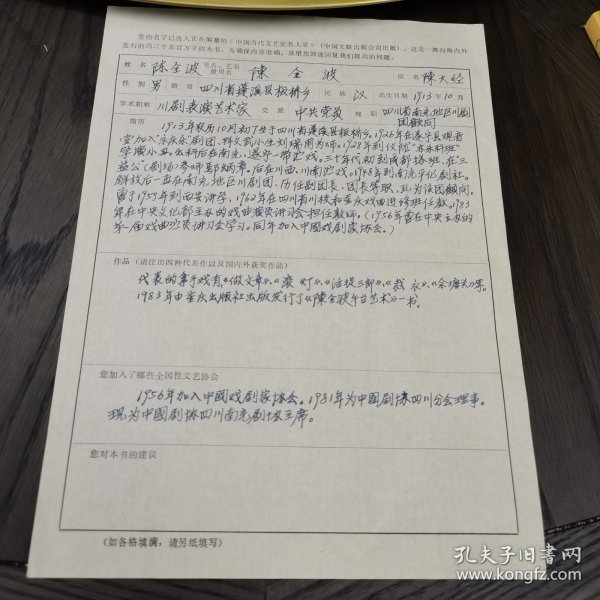 您的名字已选入正在编纂的《中国当代文艺家名人录》(中国文联出版公司出版)。这是一部向海内外
发行的约三千五百万字的大书。为确保内容准确,恳望您即速回复我们提出的问题。
姓名 陈全波 笔名、艺名 曾用名 陳全波 原名 陳大经
性别 男 籍贯 四川省蓬溪县板桥乡 民族 汉 出生日期 1913年10月
学术职称 川剧表演艺术家 党派 中共党员 现职 四川省南充地区川剧团顾问
简历
1913年农历10月初7生于四川省蓬溪县板桥乡。1926年在遂宁县观音
堂加入"永庆乐"剧团,拜文武小生刘瑞甫为师。1928年到仪陇"永乐科班"
学演小丑。出科后在南充、遂宁一带
解放后一直在南充地区川剧团,历任副团长、团长等职,
曾于1959年到西安讲学,1962年在四川省川校和重庆戏曲进修班任教。
年在中央文化部主办的戏曲演员讲习会担任教师。(1956年曾在中央主办的
第一届戏曲演员讲习会学习。同年加入中國戏剧家协会。)
作品(请注出四种代表作以及国内外获奖作品)
代表的拿手戏有《做文章》、《滚灯》、《活捉三郎》、《裁衣》、
1983年由重庆出版社出版发行了《陳全波舞台艺术》一书。
您加入了哪些全国性文艺协会
1956年加入中國戏剧家协会。1981年为中國剧协四川分会理事。
现为中國剧协四川南充剧协主席。
您对本书的建议
(如各格填满,请另纸填写)
孔夫子旧书网
www.kongfz.com